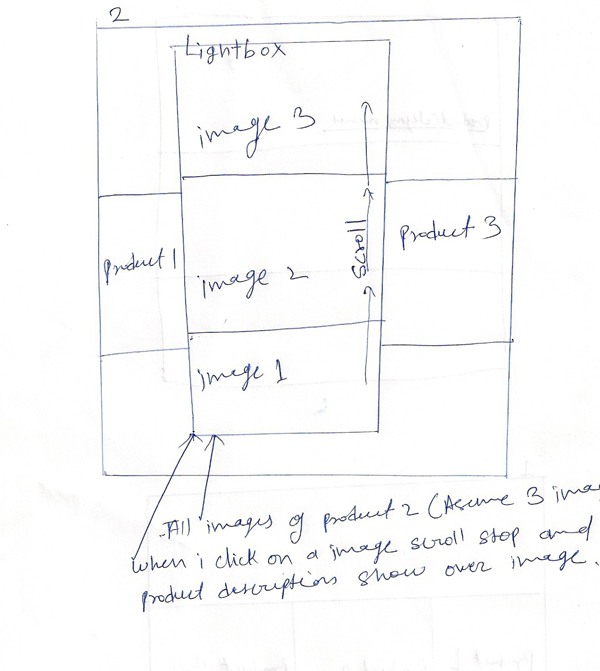 2
Lightbox
image 3
Product 1
image 2
Scroll
Product 3
image 1
All images of product 2 (Assume 3 ima
when i click on a image scroll stop and
product descriptions show over image.